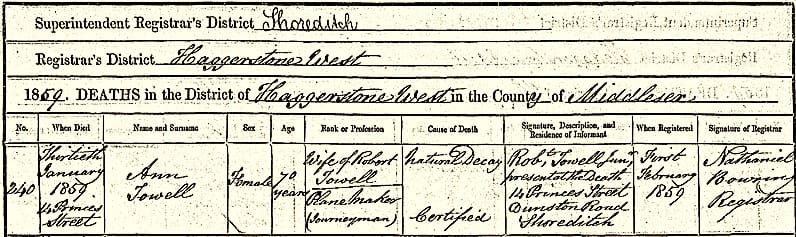 Superintendent Registrar's District Shoreditch
Registrar's District Haggerstone West
1859. DEATHS in the District of Haggerstone West in the County of Middlesex
No. When Died Name and Surname Sex Age Rank or Profession Cause of Death Signature, Description, and Residence of Informant When Registered Signature of Registrar
240
Thirtieth
January
1859
14 Princes
Street
Ann
Towell
Female
70
years
Wife of Robert
Towell
Plane Maker
(Journeyman)
Natural Decay
Certified
Robt Towell, Junr
present at the Death
14 Princes Street
Dunston Road
Shoreditch
First
February
1859
Nathaniel
Bowring
Registrar